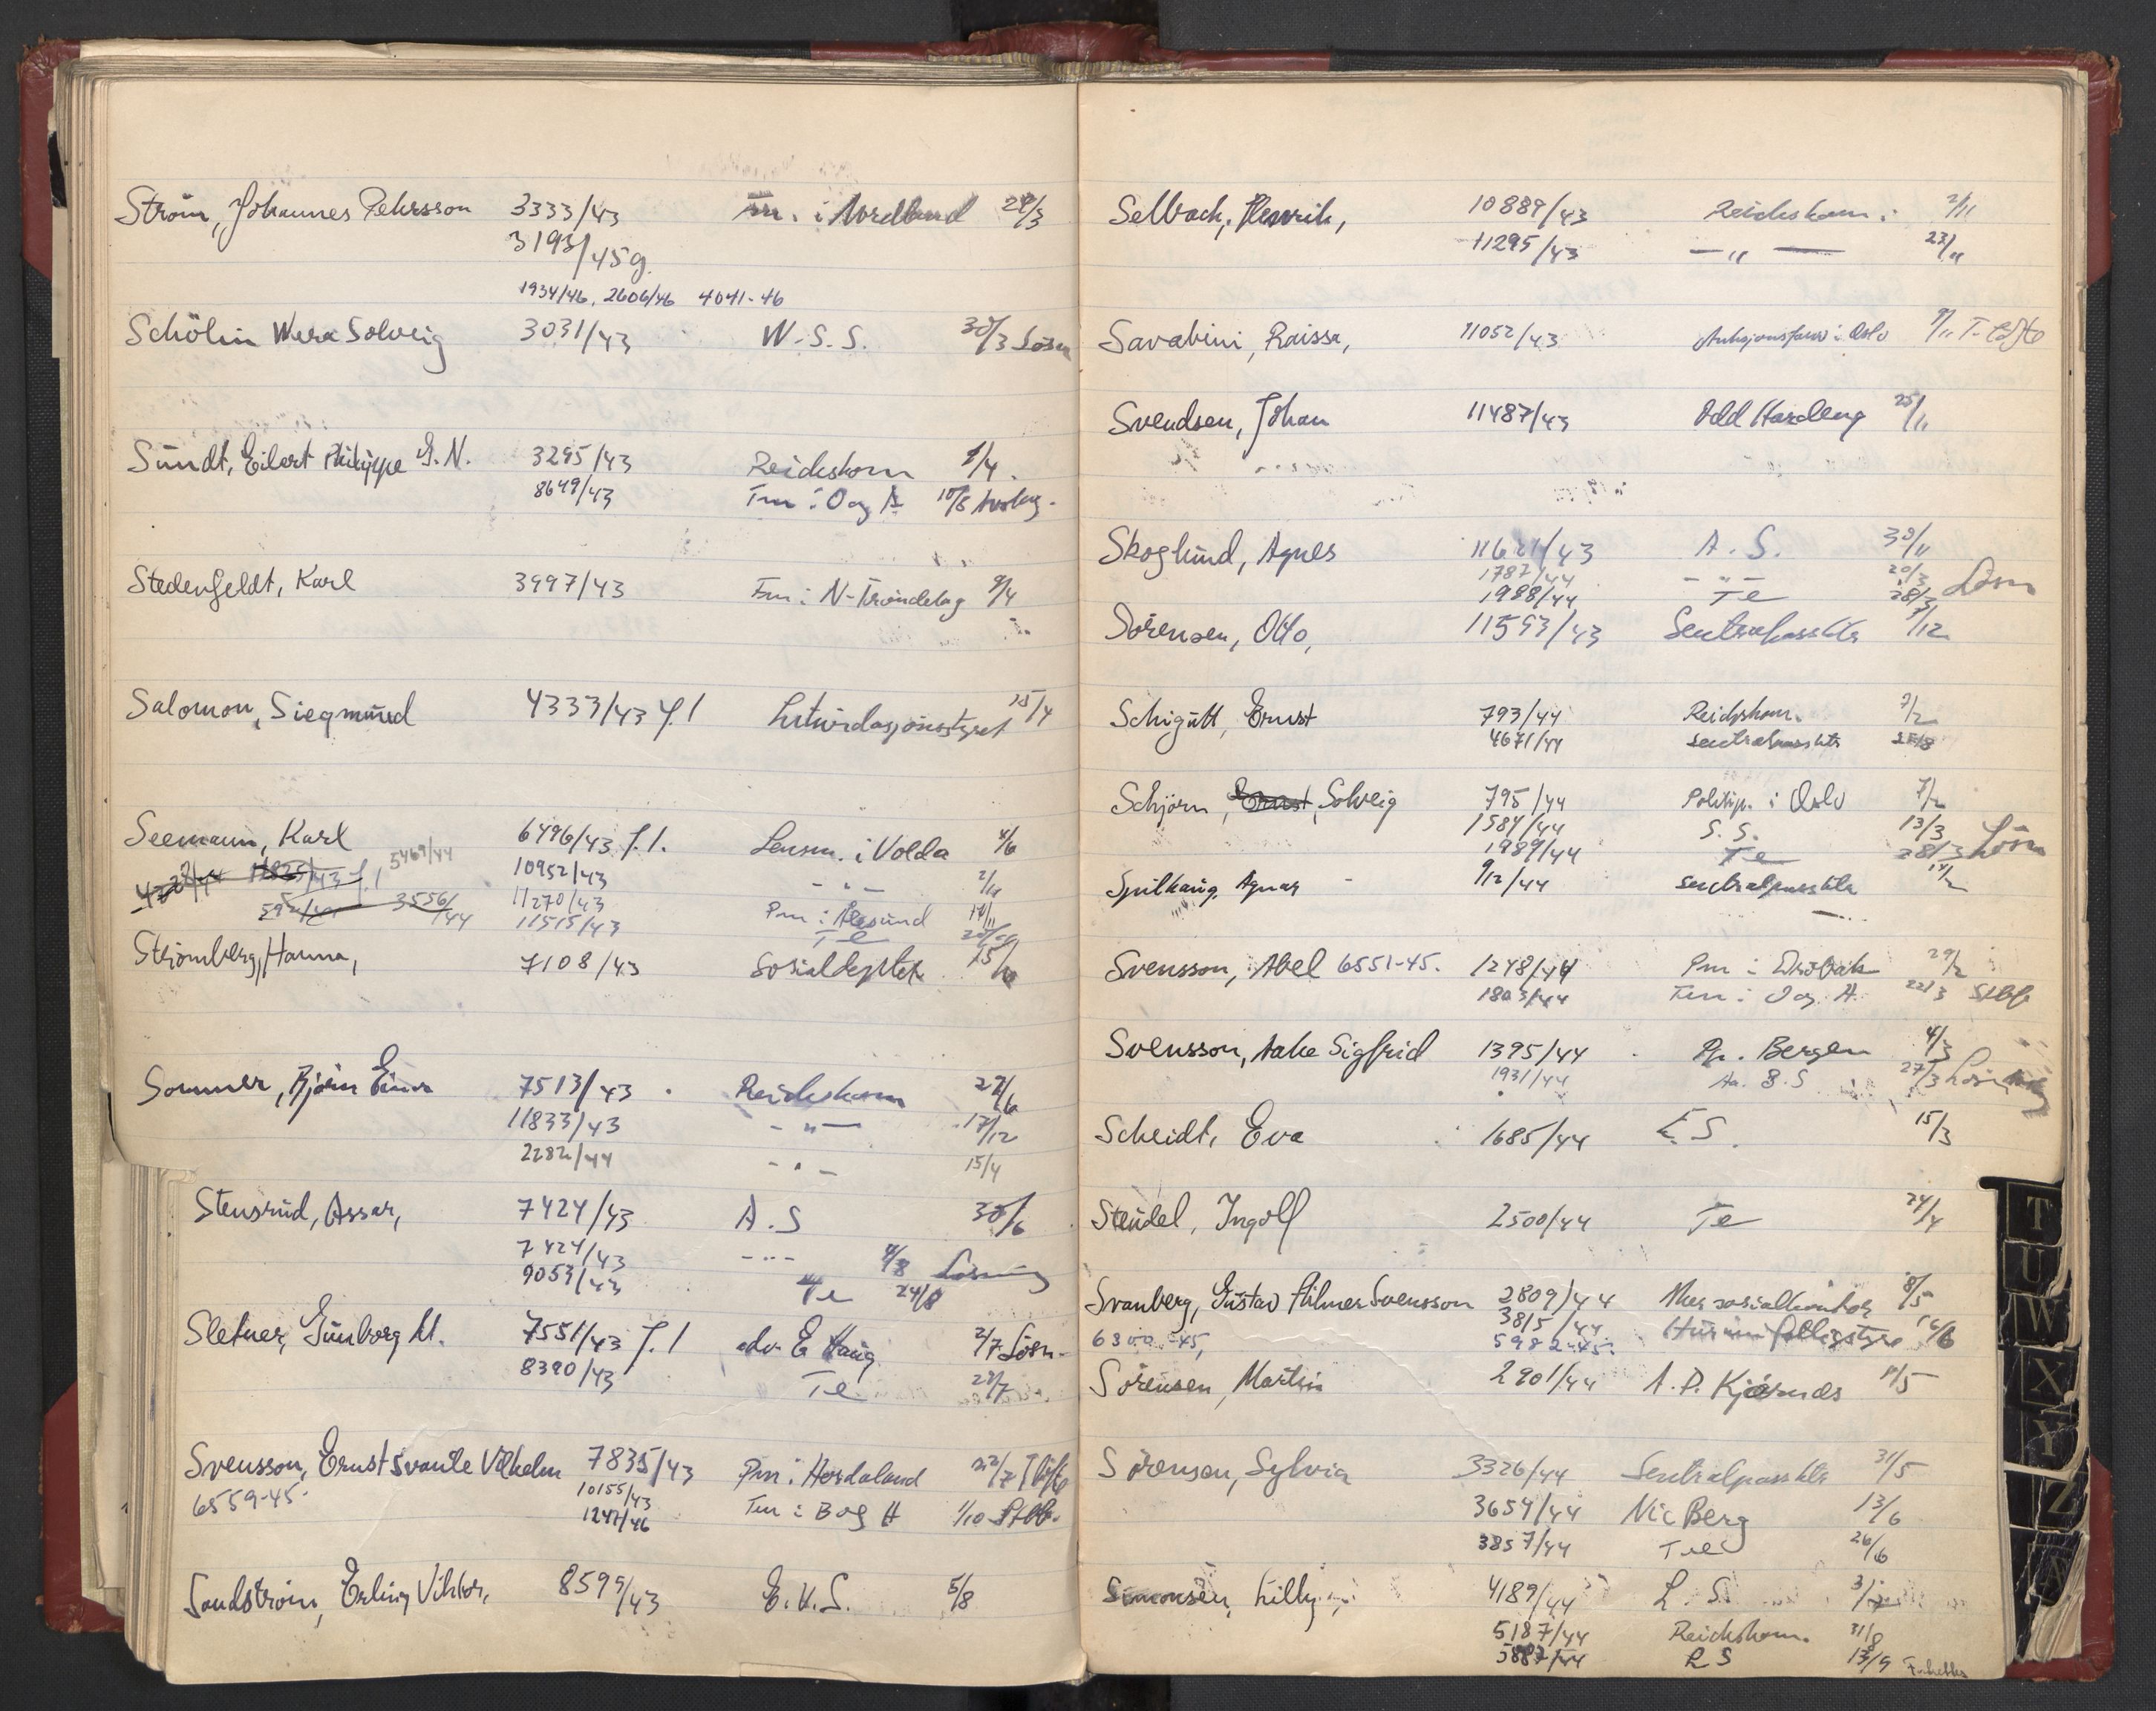 Ström, Johannes Pehrsson 3333/43 Fm. i Nordland 29/3
3193/45 g.
1934/46, 2606/46 4041-46
Schölin Wera Solveig 3031/43 W. S. S. 30/3 Løsn
Sundt, Eilert Philippe G. N. 3295/43 Reichskom 1/4.
8649/43 Fm i O og A 10/8 Avslag.
Stedenfeldt, Karl 3997/43 Fm i N-Trøndelag 9/4
Salomon, Siegmund 4333/43 J.l 15/4
Seemann, Karl 6496/43 J.l. Lensm. i Volda 4/6
5469/44 10952/43 - " - 2/11
592/44 3556/44 11270/43 Pm i Ålesund
11515/43 Te
Strömberg, Hanna, 7108/43 Sosialdeptet
Sommer, Bjørn Einar 7513/43 Reichskom 22/6
11833/43 - " - 17/12
2282/44 - " - 15/4
Stensrud, Assar, 7424/43 A. S 30/6
7424/43 - " - 4/8 Løsning
9053/43 Te 24/8
Sletner, Gunborg M. 7551/43 J.l adv. E Haug 2/7 Løsn-
8390/43 Te 28/7
Svensson, Ernst Svante Vilhelm 7835/43 Pm i Hordaland 22/7
6559-45. 10155/43 Fm i B og H 1/10 Stbb.
1247/46
Sandström, Erling Viktor, 8599/43 E. V. S. 5/8
Selbach, Henrik, 10889/43 Reichskom. 2/11
11295/43 - " - 23/11
Savabini, Raissa, 11052/43 9/11
Svendsen, Johan 11487/43 Odd Hardeng 25/11
Skoglund, Agnes 11621/43 A. S. 30/11
1787/44 - " - 20/3
1988/44 Te 28/3 Løsn
Sörensen, Otto, 11593/43 Sentralpassktr 7/12
Schigutt, Ernst 793/44 Reichskom. 7/2
4671/44 Sentralpassktr
Schjörn, Ernst, Solveig 795/44 Politip. i Oslo 7/2
1584/44 S. S. 13/3
1989/44 Te 28/3 Løsn
912/44 Sentralpassktr
Svensson, Abel 6551-45. 1248/44 Pm i Drøbak 29/2
1803/44 Fm i O og A. 22/3 Stbb
Svensson, Aake Sigfrid 1395/44 Pp. Bergen 4/3
1931/44 Aa. S. S 27/3
Scheidt, Eva 1685/44 E. S. 15/3
Steudel, Ingolf 2500/44 Te 24/4
Svanberg, Gustav Hilmer Svensson 2809/44 8/5
3815/44 16/6
5982-45.
Sörensen, Martin 2901/44 A. P. Kjøsnes 11/5
Sörensen, Sylvia 3326/44 Sentralpassktr 31/5
3659/44 Nic Berg 13/6
3857/44 26/6
Simonsen, Lilly 4189/44 L. S.
5187/44 Reichskom. 31/8
5887/44 L S 13/9
T
U
W
X
Y
Z